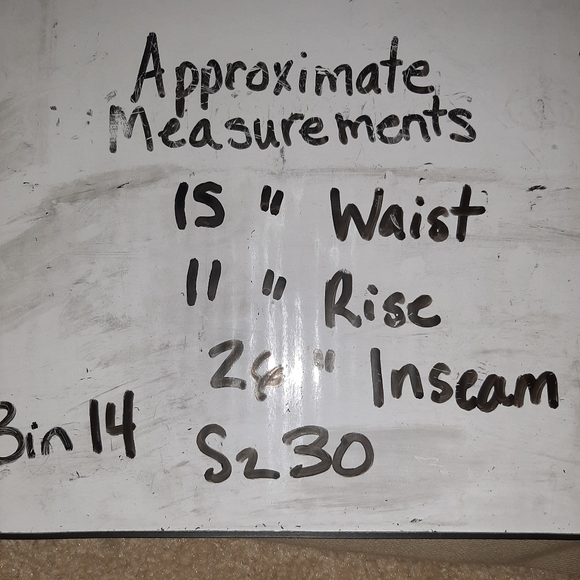 Approximate
Measurements
15 " Waist
11 " Rise
" Inseam
Bin 14
Sz 30